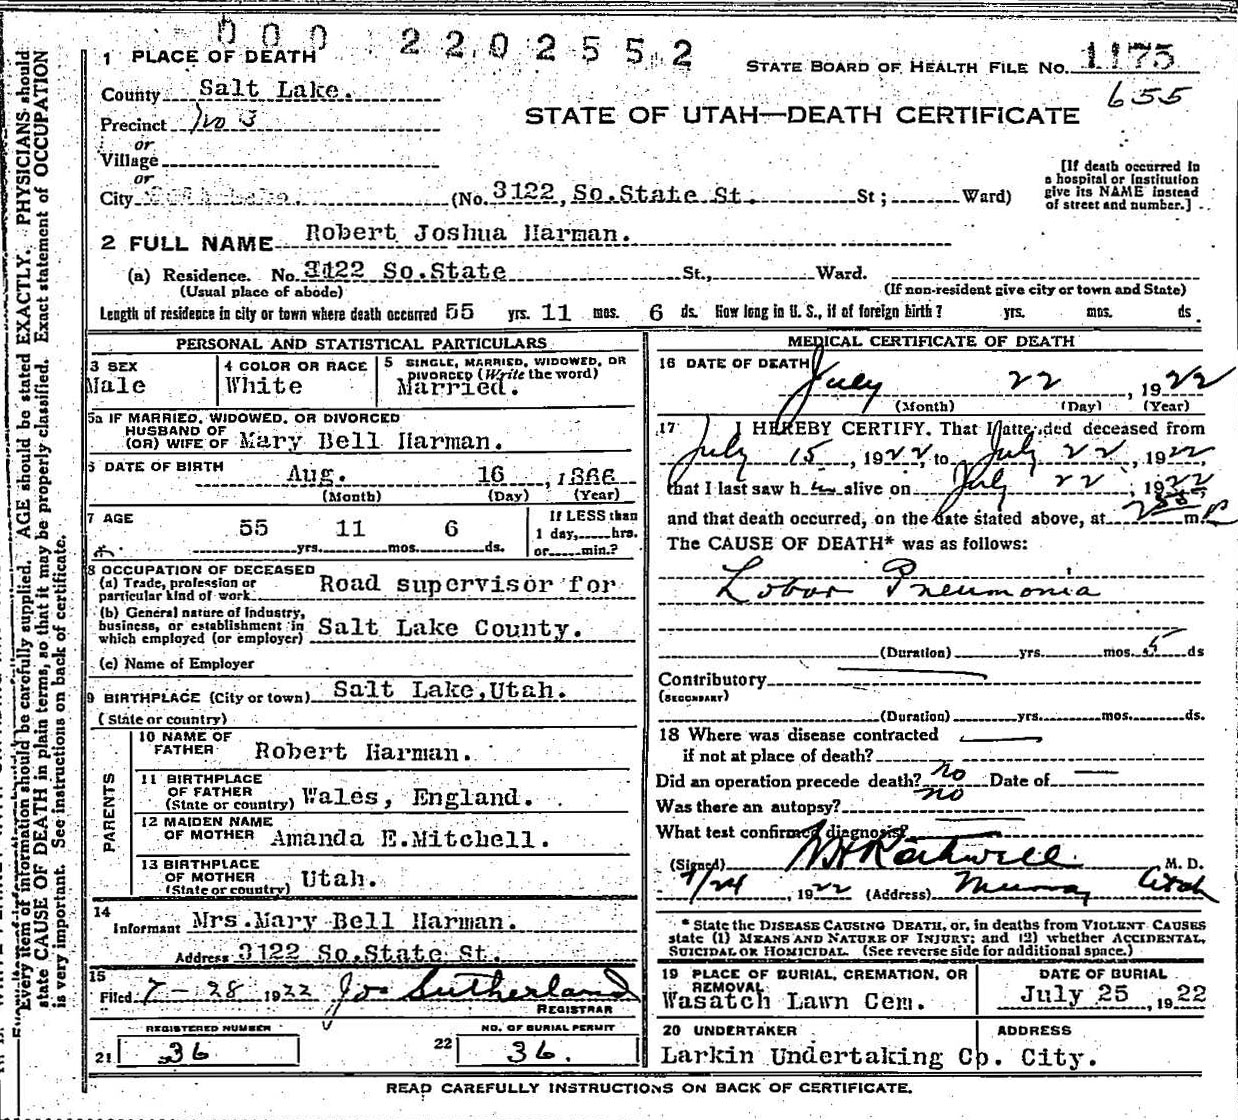 000 2202552
1 PLACE OF DEATH
STATE BOARD OF HEALTH FILE No. 1175
County Salt Lake.
655
Precinct No 3
STATE OF UTAH—DEATH CERTIFICATE
or
Village
or
City (No. 3122, So.State St. St; Ward)
[If death occurred in
a hospital or institution
give its NAME instead
of street and number.]
2 FULL NAME Robert Joshua Harman.
(a) Residence. No. 3122 So.State St., Ward.
(Usual place of abode) (If non-resident give city or town and State)
Length of residence in city or town where death occurred 55 yrs. 11 mos. 6 ds. How long in U. S., if of foreign birth? yrs. mos. ds.
PERSONAL AND STATISTICAL PARTICULARS
3 SEX
Male
4 COLOR OR RACE
White
5 SINGLE, MARRIED, WIDOWED, OR
DIVORCED (Write the word)
Married.
5a IF MARRIED, WIDOWED, OR DIVORCED
HUSBAND OF
(OR) WIFE OF Mary Bell Harman.
6 DATE OF BIRTH
Aug. 16, 1866
(Month) (Day) (Year)
7 AGE
55 yrs. 11 mos. 6 ds.
If LESS than
1 day, hrs.
or min.?
8 OCCUPATION OF DECEASED
(a) Trade, profession or
particular kind of work Road supervisor for
(b) General nature of industry,
business, or establishment in
which employed (or employer) Salt Lake County.
(c) Name of Employer
9 BIRTHPLACE (City or town) Salt Lake,Utah.
(State or country)
PARENTS
10 NAME OF
FATHER Robert Harman.
11 BIRTHPLACE
OF FATHER
(State or country) Wales, England.
12 MAIDEN NAME
OF MOTHER Amanda E.Mitchell.
13 BIRTHPLACE
OF MOTHER
(State or country) Utah.
14
Informant Mrs.Mary Bell Harman.
Address 3122 So.State St.
15
Filed 7-28 1922 Jos Sutherland
REGISTRAR
REGISTERED NUMBER
21 36
NO. OF BURIAL PERMIT
22 36.
MEDICAL CERTIFICATE OF DEATH
16 DATE OF DEATH
July 22, 1922
(Month) (Day) (Year)
17 I HEREBY CERTIFY, That I attended deceased from
July 15, 1922, to July 22, 1922,
that I last saw h im alive on July 22, 1922
and that death occurred, on the date stated above, at m.
The CAUSE OF DEATH* was as follows:
Lobar Pneumonia
(Duration) yrs. mos. 5 ds
Contributory
(SECONDARY)
(Duration) yrs. mos. ds.
18 Where was disease contracted
if not at place of death?
Did an operation precede death? no Date of
Was there an autopsy? no
What test confirmed diagnosis?
(Signed) Rothwell M. D.
7/24, 1922 (Address) Murray Utah
* State the DISEASE CAUSING DEATH, or, in deaths from VIOLENT CAUSES
state (1) MEANS AND NATURE OF INJURY; and (2) whether ACCIDENTAL,
SUICIDAL OR HOMICIDAL. (See reverse side for additional space.)
19 PLACE OF BURIAL, CREMATION, OR
REMOVAL
Wasatch Lawn Cem.
DATE OF BURIAL
July 25, 1922
20 UNDERTAKER
Larkin Undertaking Co.
ADDRESS
City.
READ CAREFULLY INSTRUCTIONS ON BACK OF CERTIFICATE.
Every item of information should be carefully supplied. AGE should be stated EXACTLY. PHYSICIANS should
state CAUSE OF DEATH in plain terms, so that it may be properly classified. Exact statement of OCCUPATION
is very important. See instructions on back of certificate.